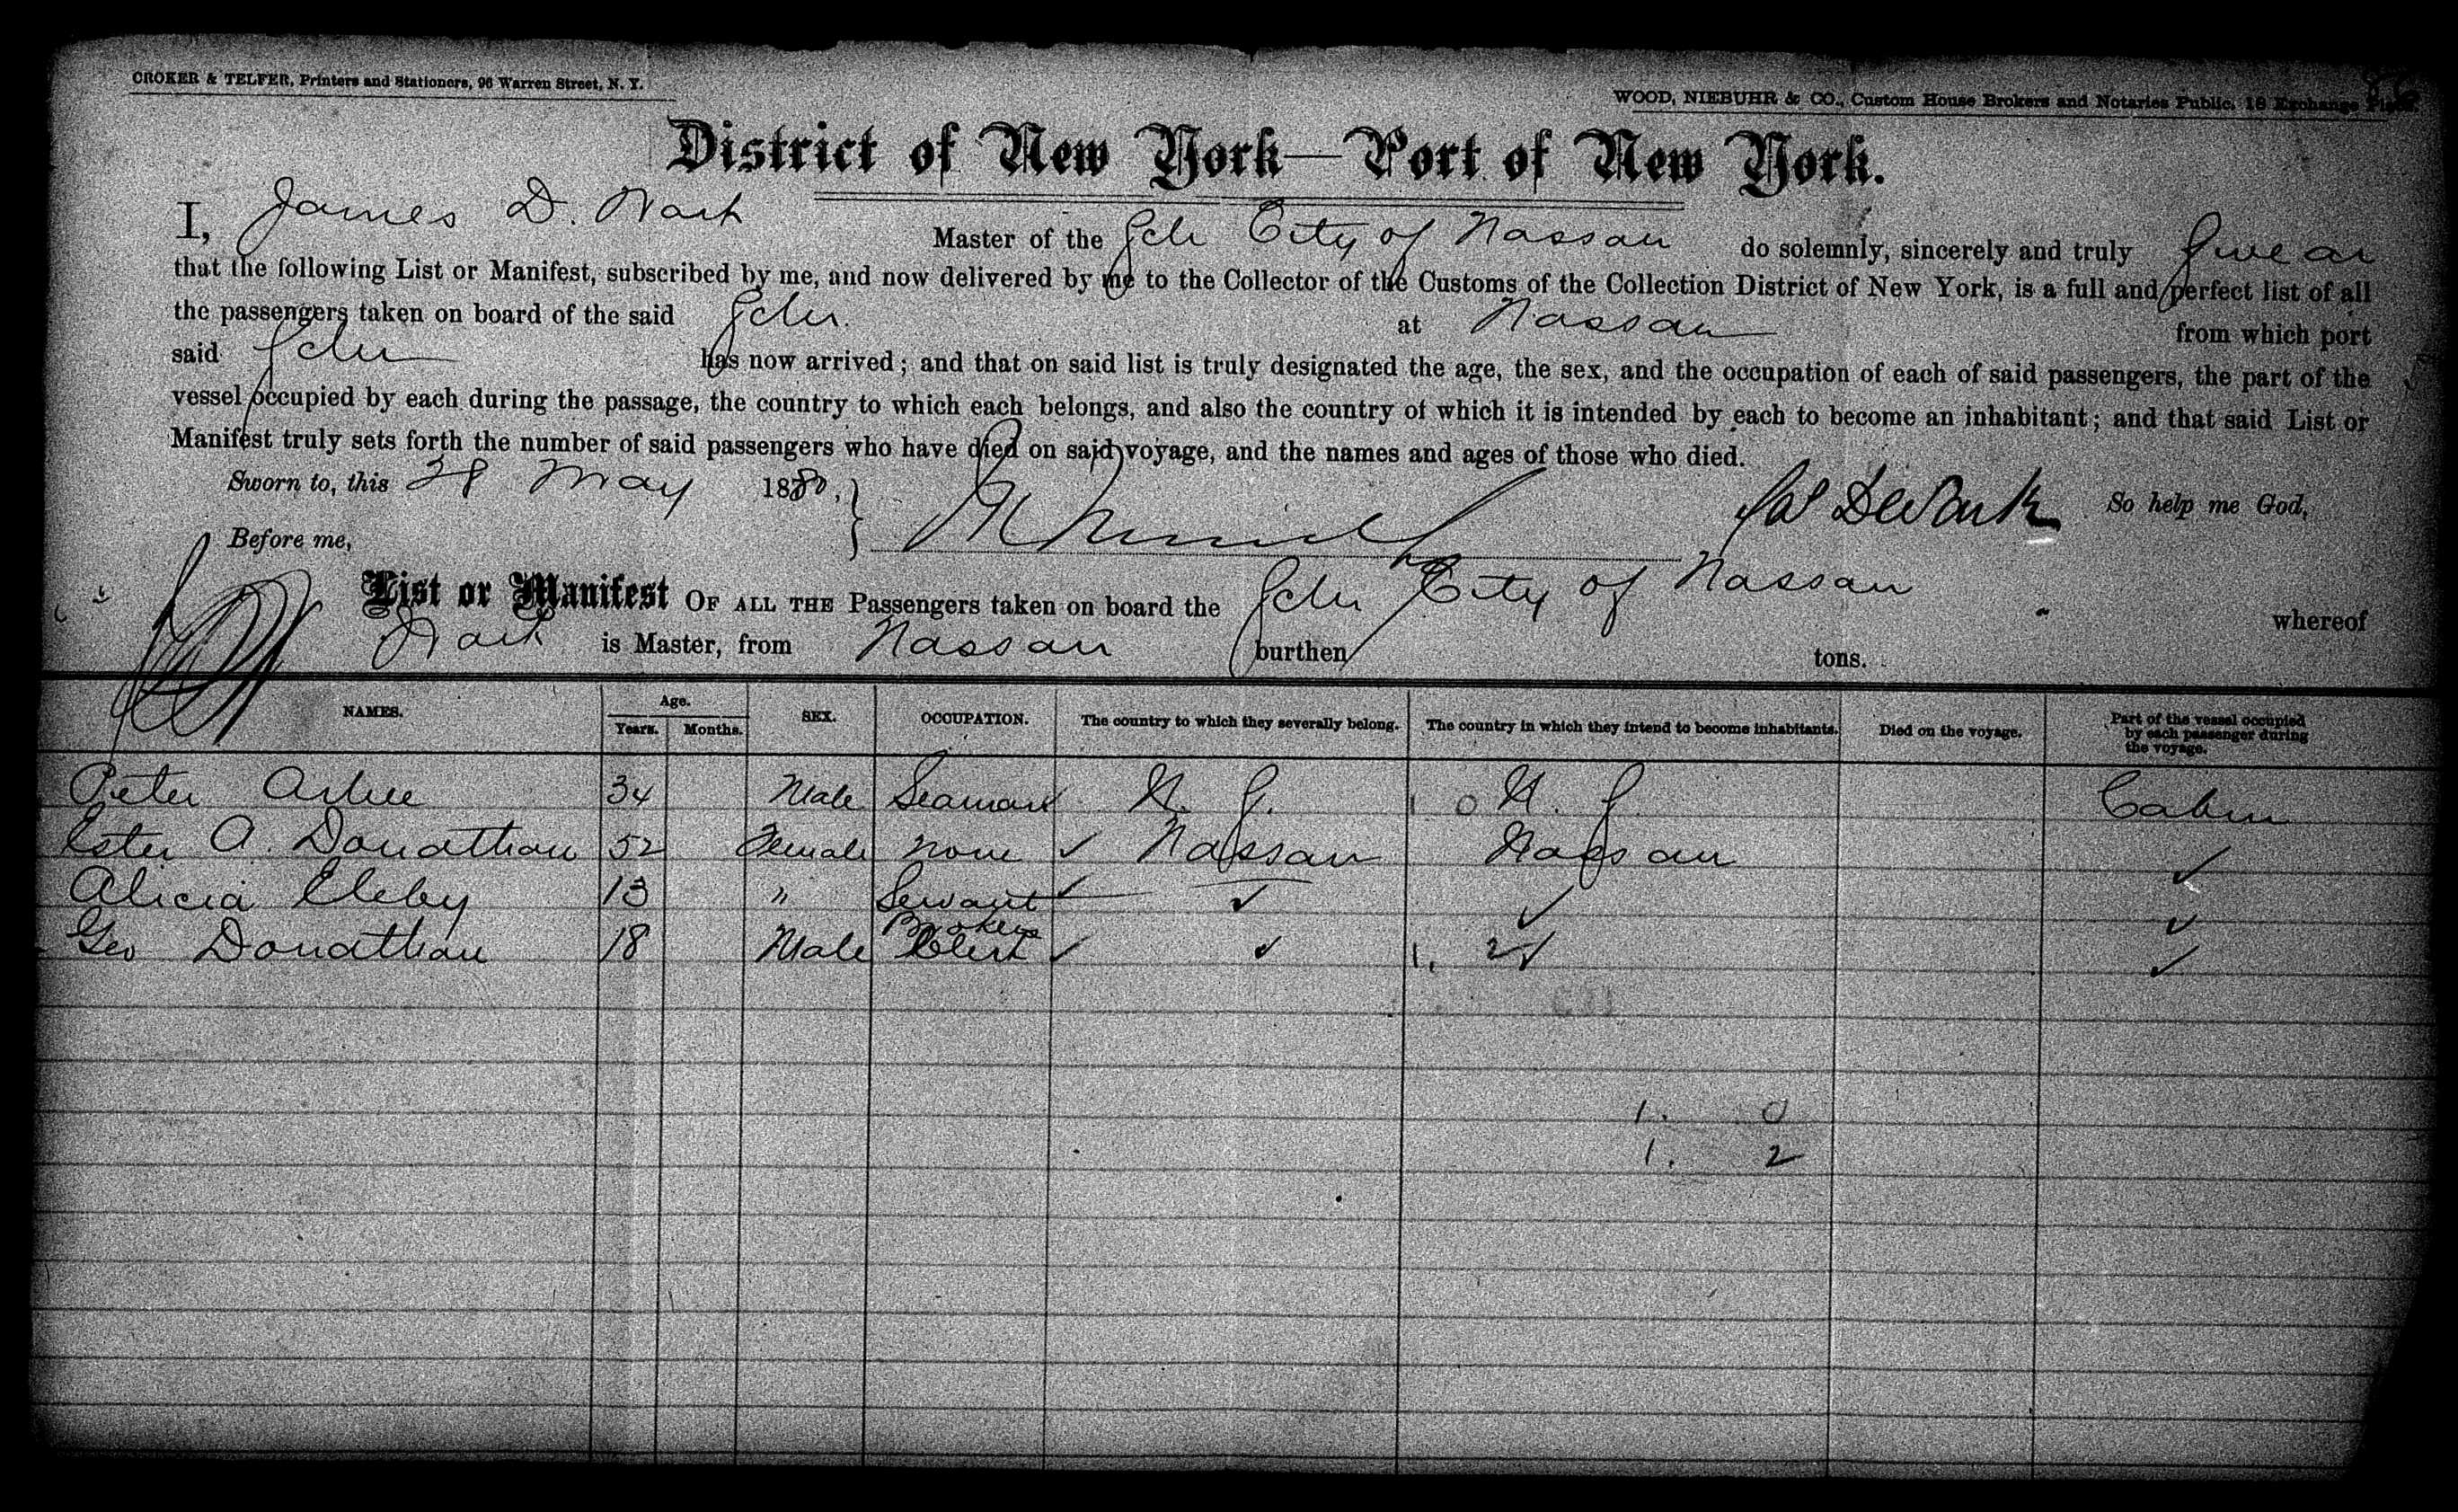 CROKER & TELFER, Printers and Stationers, 96 Warren Street, N. Y.
WOOD, NIEBUHR & CO., Custom House Brokers and Notaries Public, 18 Exchange Place
District of New York—Port of New York.
I, James D. Wark Master of the Schr City of Nassau do solemnly, sincerely and truly swear
that the following List or Manifest, subscribed by me, and now delivered by me to the Collector of the Customs of the Collection District of New York, is a full and perfect list of all
the passengers taken on board of the said Schr. at Nassau from which port
said Schr has now arrived; and that on said list is truly designated the age, the sex, and the occupation of each of said passengers, the part of the
vessel occupied by each during the passage, the country to which each belongs, and also the country of which it is intended by each to become an inhabitant; and that said List or
Manifest truly sets forth the number of said passengers who have died on said voyage, and the names and ages of those who died.
Sworn to, this 28 May 1880, Jas D Wark So help me God,
Before me,
List or Manifest OF ALL THE Passengers taken on board the Schr City of Nassau whereof
Wark is Master, from Nassau burthen tons.
NAMES. Age. Years. Months. SEX. OCCUPATION. The country to which they severally belong. The country in which they intend to become inhabitants. Died on the voyage. Part of the vessel occupied by each passenger during the voyage.
Peter 34 Male Seaman Cabin
Ester A. Donathan 52 Female none ✓ Nassau Nassau ✓
Alicia Eleby 13 " Servant ✓ ✓ ✓ ✓
Geo Donathan 18 Male Brokers Clerk ✓ ✓ 1. 2 ✓ ✓
1. 0
1. 2